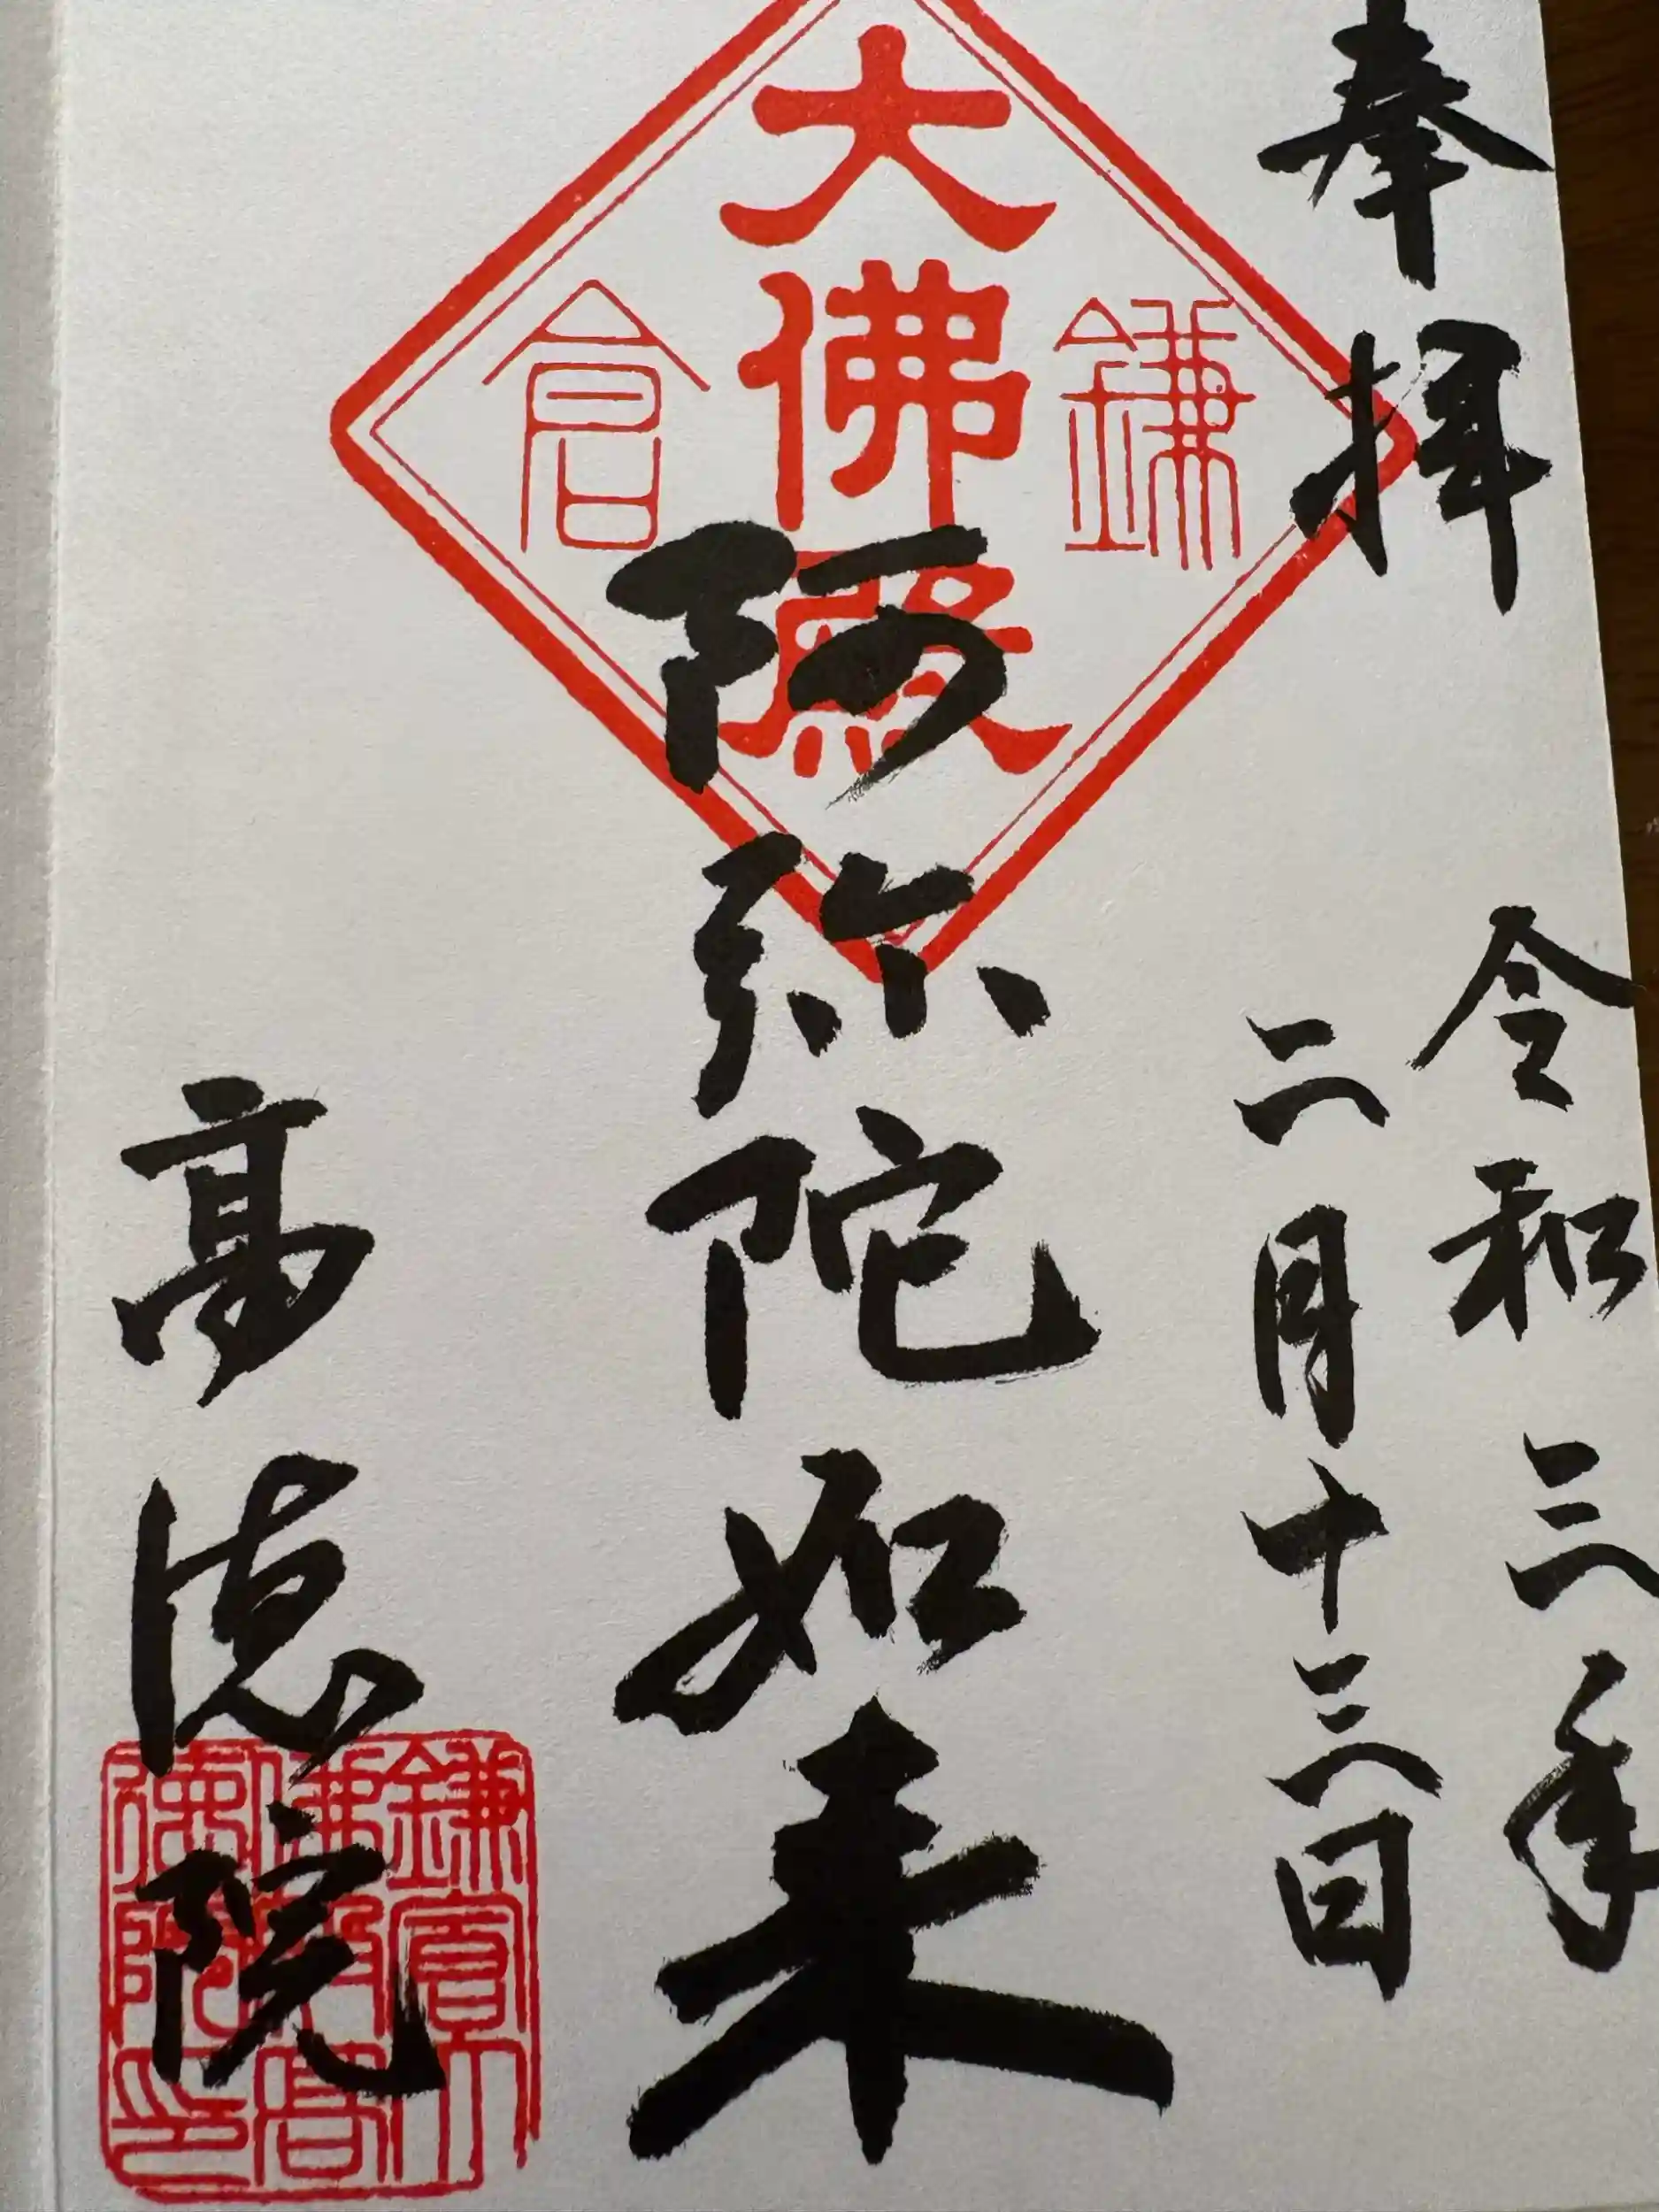 奉拝
令和三年
二月十三日
鎌倉
大佛殿
阿弥陀如来
高徳院
鎌倉大
佛殿高
徳院印